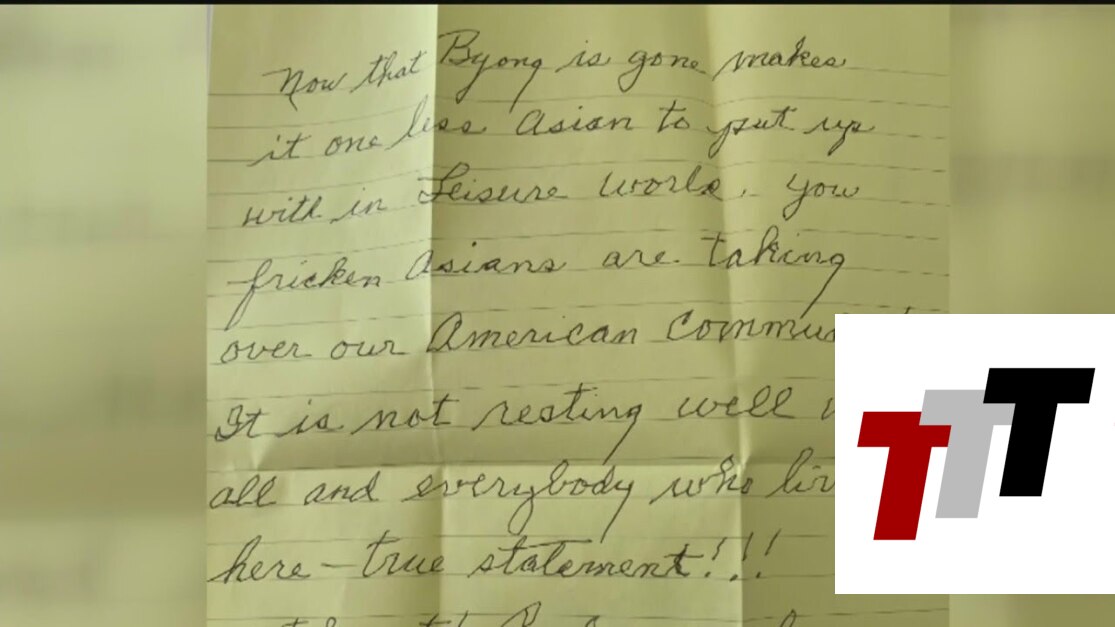 Now that Byong is gone makes
it one less Asian to put up
with in Leisure World. You
fricken Asians are taking
over our American
It is not resting well
all and everybody who
here – true statement!!!
TTT